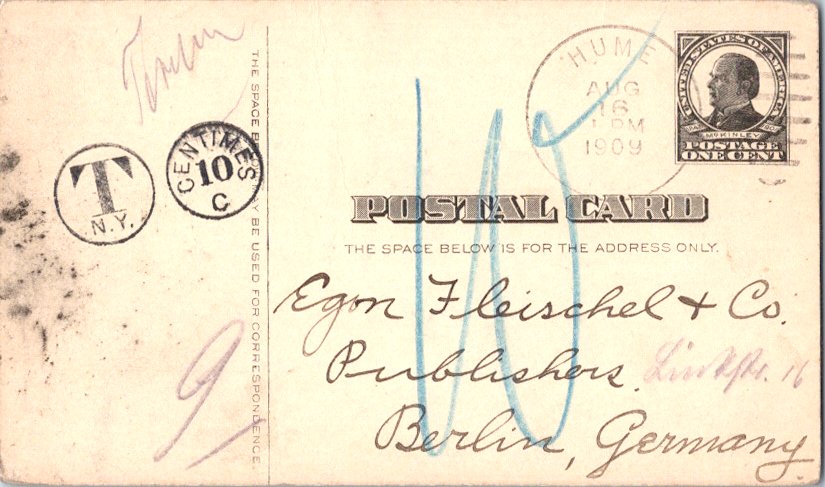 HUME
AUG
16
PM
1909
UNITED STATES OF AMERICA
McKINLEY
POSTAGE
ONE CENT
T
N.Y.
CENTIMES
10
C
THE SPACE BELOW MAY BE USED FOR CORRESPONDENCE.
POSTAL CARD
THE SPACE BELOW IS FOR THE ADDRESS ONLY.
Egon Fleischel & Co.
Publishers
Linkstr. 16
Berlin, Germany
9
10